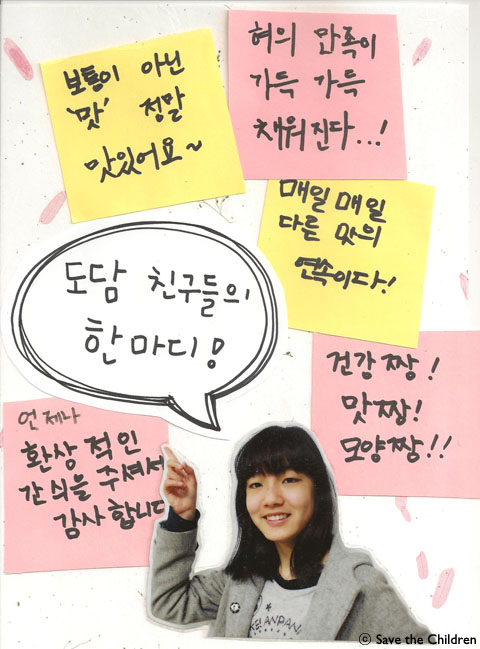 보통이 아닌
'맛' 정말
맛있어요~
혀의 만족이
가득 가득
채워진다...!
매일 매일
다른 맛의
연속이다!
도담 친구들의
한마디!
건강짱!
맛짱!
모양짱!!
언제나
환상적인
간식을 주셔서
감사합니다
ANPAN
© Save the Children